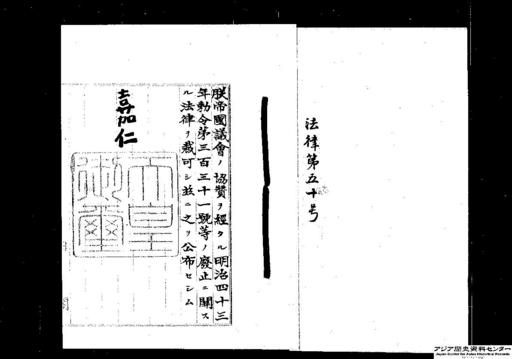 法律第五十号
朕帝國議會ノ協贊ヲ經タル明治四十三
年勅令第三百三十一號等ノ廢止ニ關ス
ル法律ヲ裁可シ茲ニ之ヲ公布セシム
嘉仁
天皇
御璽
アジア歴史資料センター
Japan Center for Asian Historical Records